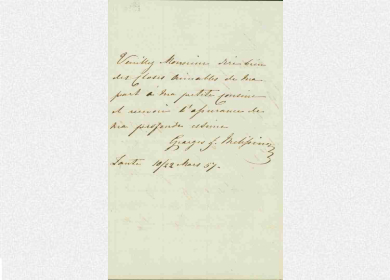 Veuillez Monsieur dire bien
des choses aimables de ma
part à ma petite cousine
et recevoir l'assurance de
ma profonde estime
Georges J.
Zante 10/22 Mars 57.